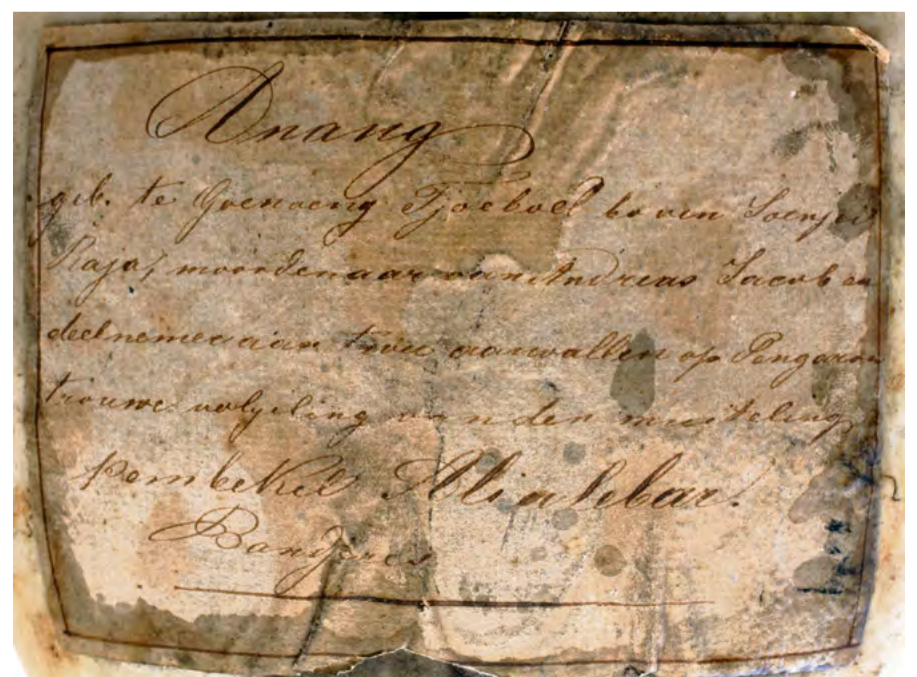 Anang
geb. te Goenoeng Tjoeboel boven Soengei
Raja, moordenaar van Andreas Jacob en
deelnemer aan twee aanvallen op Pengaron
trouwe volgeling van den muiteling
pembekel Aliakbar.
Bandjerees